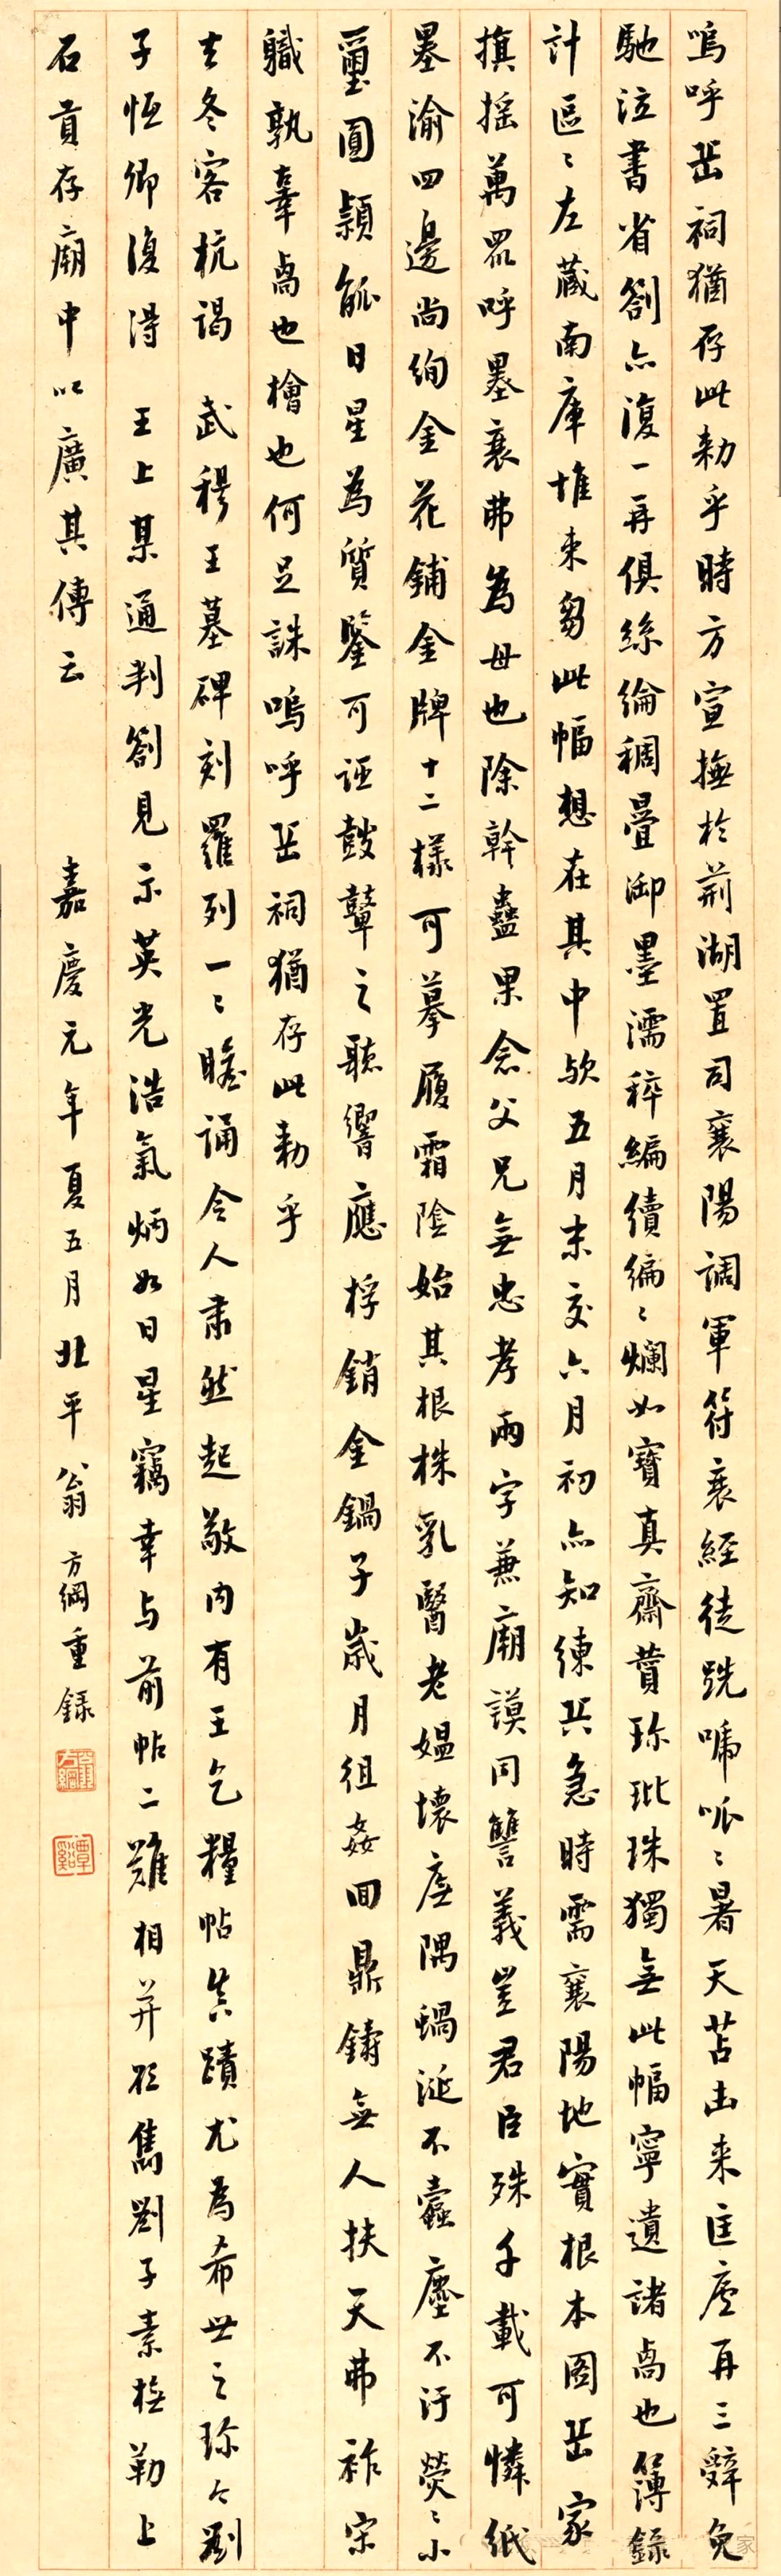 嗚呼岳祠猶存此勅乎時方宣撫於荊湖置司襄陽調軍符衰絰徒跣啼呱〻暑天苫凷来匡廬再三辭免
馳泣書省劄亦復一再俱絲綸稠疊御墨濡稡編續編〻爛如寶真齋蕡珎玭珠獨無此幅寧遺諸卨也簿錄
計區〻左藏南庫堆束芻此幅想在其中欤五月末交六月初亦知練兵急時需襄陽地實根本圖岳家
旗摇萬眾呼墨衰弗為毋也除幹蠱果念父兄無忠孝兩字兼廟謨同讐義豈君臣殊千載可憐紙
墨渝四邊尚絢金花鋪金牌十二樣可摹履霜陰始其根株乳醫老媼壞廬隅蝸涎不蠧塵不汙熒〻小
璽圓穎觚日星為質鑒可誣鼓鼙之聽響應桴銷金鍋子歲月徂姦回鼎鑄無人扶天弗祚宋
職孰辜卨也檜也何足誅嗚呼岳祠猶存此勅乎
去冬客杭謁 武穆王墓碑刻羅列一〻瞻誦令人肅然起敬内有王乞糧帖真蹟尤為希世之珎今劉
子恆卿復得 王上某通判劄見示英光浩氣炳如日星竊幸与前帖二難相并欣雋劉子素橅勒上
石貢存廟中以廣其傳云 嘉慶元年夏五月北平翁方綱重録
翁方綱
覃谿